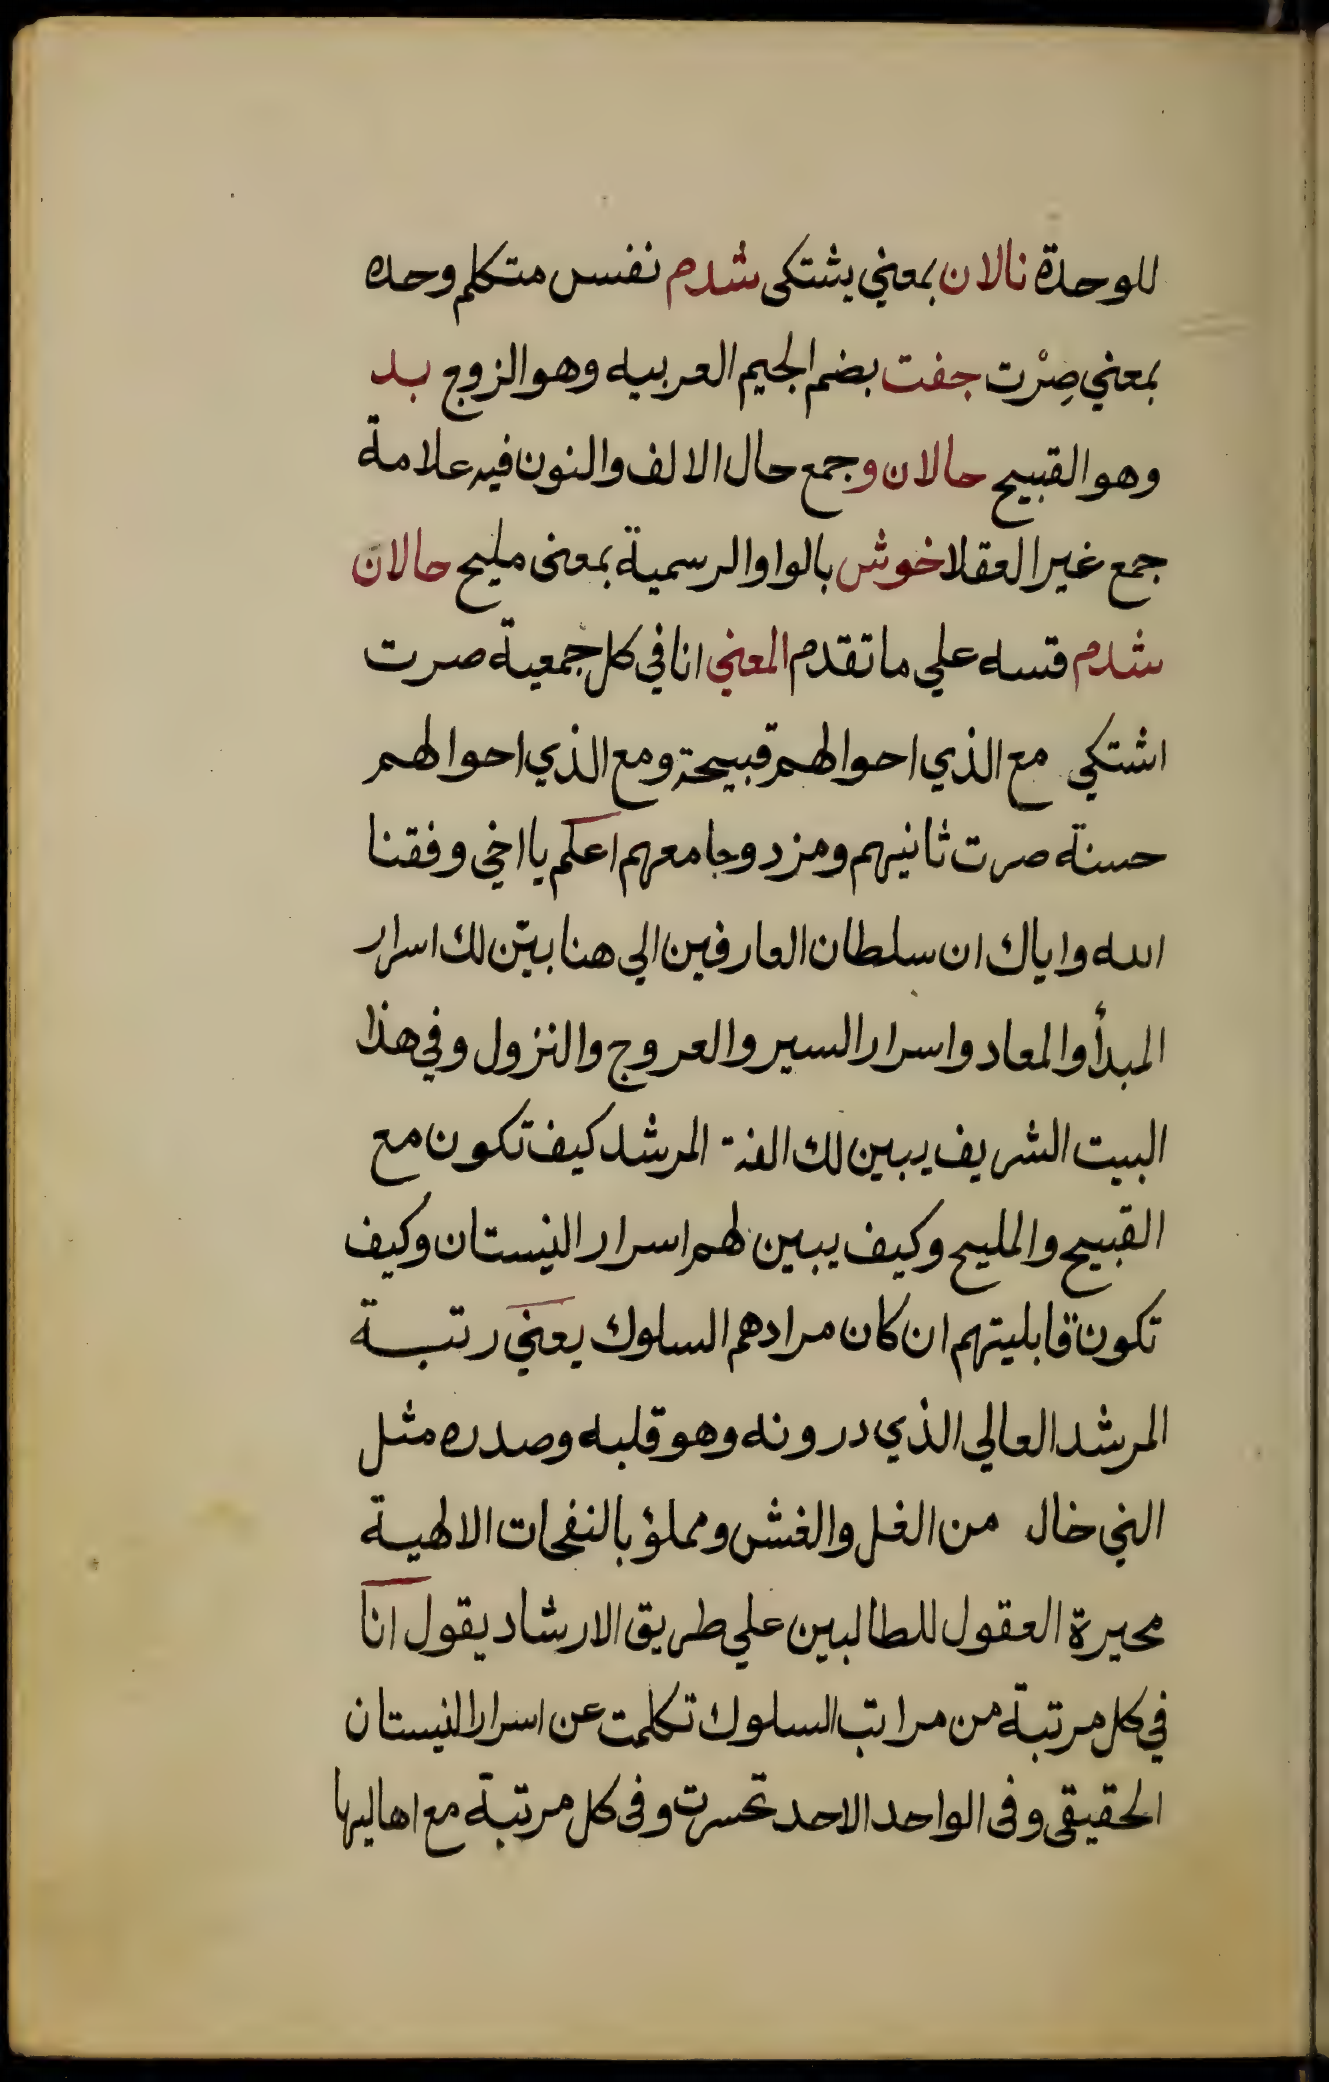 للوحدة نالان بمعني يشتكى شدم نفس متكلم وحده
بمعني صِرْت جفت بضم الجيم العربيه وهو الزوج بد
وهو القبيح حالان وجمع حال الالف والنون فيه علامة
جمع غير العقلا خوش بالواو الرسمية بمعنى مليح حالان
شدم قسه علي ما تقدم المعني انا في كل جمعية صرت
اشتكي مع الذي احوالهم قبيحة ومع الذي احوالهم
حسنة صرت ثانيهم ومزدوجا معهم اعلم يا اخي وفقنا
الله واياك ان سلطان العارفين الي هنا بيّن لك اسرار
المبدأ والمعاد واسرار السير والعروج والنزول وفي هذا
البيت الشريف يبين لك المرشد كيف تكون مع
القبيح والمليح وكيف يبين لهم اسرار النيستان وكيف
تكون قابليتهم ان كان مرادهم السلوك يعني رتبة
المرشد العالي الذي درونه وهو قلبه وصدره مثل
الني خال من الغل والغش ومملؤ بالنفحات الالهية
محيرة العقول للطالبين علي طريق الارشاد يقول انا
في كل مرتبة من مراتب السلوك تكلمت عن اسرار النيستان
الحقيقي وفي الواحد الاحد تحسرت وفي كل مرتبة مع اهاليها